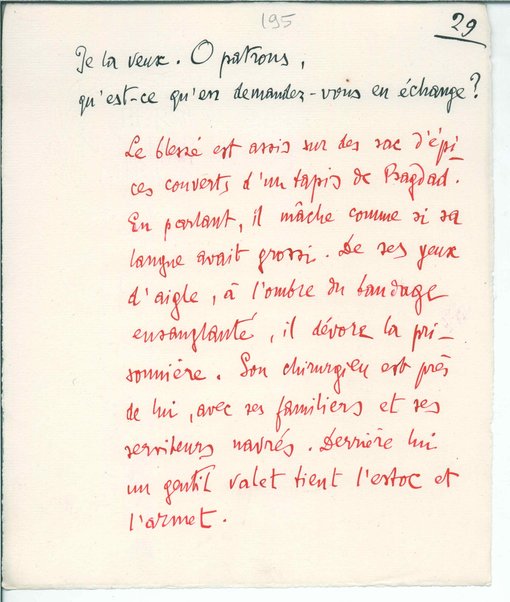 195
29
Je la veux. O patrons,
qu'est-ce qu'en demandez-vous en échange?
Le blessé est assis sur des sac d'épi-
ces couverts d'un tapis de Bagdad.
En parlant, il mâche comme si sa
langue avait grossi. De ses yeux
d'aigle, à l'ombre du bandage
ensanglanté, il dévore la pri-
sonnière. Son chirurgien est près
de lui, avec ses familiers et ses
serviteurs navrés. Derrière lui
un gentil valet tient l'estoc et
l'armet.